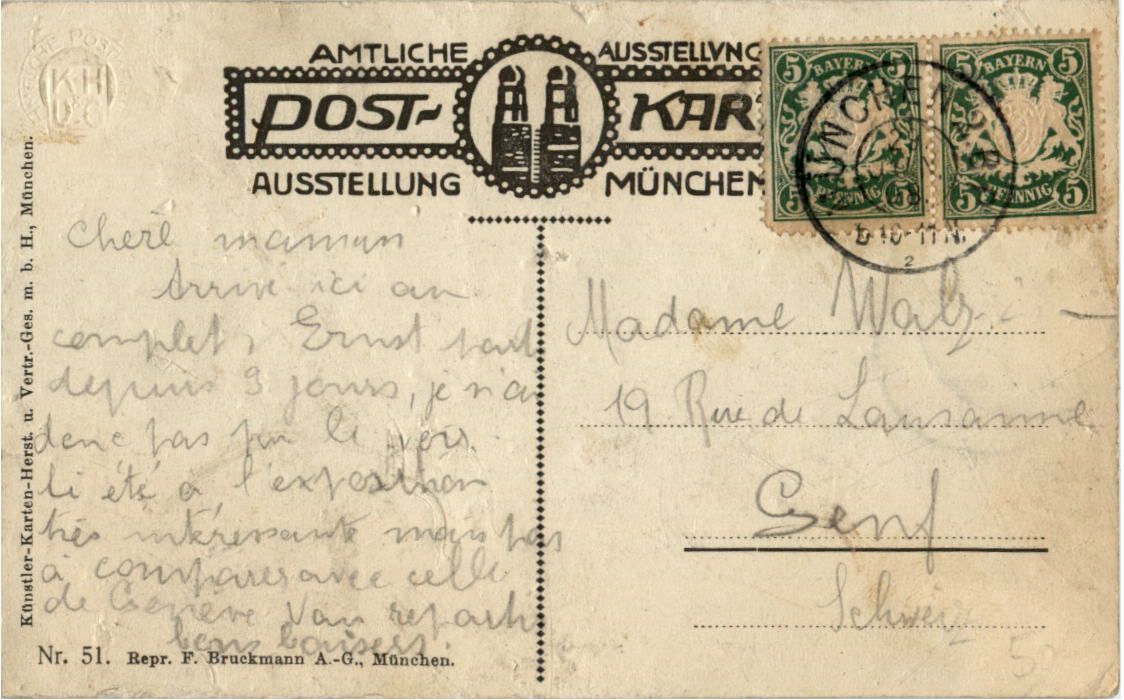 AMTLICHE AUSSTELLUNG
POST- KAR
AUSSTELLUNG MÜNCHEN
5 BAYERN 5
5 PFENNIG 5
5 BAYERN 5
5 PFENNIG 5
MÜNCHEN
10-11 N.
2
K H
V & G
Künstler-Karten-Herst. u. Vertr.-Ges. m. b. H., München.
Cherè maman
Arrivé ici au
complet, Ernst part
depuis 3 jours, je n'ai
donc pas pu le voir.
été à l'exposition
très intéressante mais pas
à comparer avec celle
de Genève repartir
bons baisers.
Madame
19 Rue de Lausanne
Genf
Schweiz
50
Nr. 51. Repr. F. Bruckmann A.-G., München.